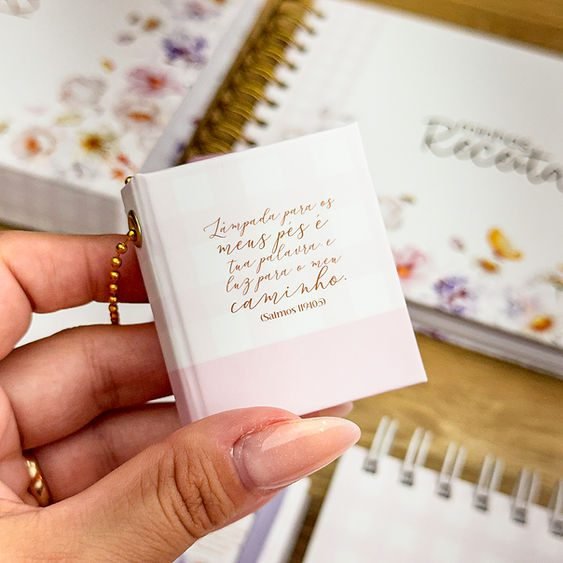 Lâmpada para os
meus pés é
tua palavra e
luz para o meu
caminho.
(Salmos 119105)